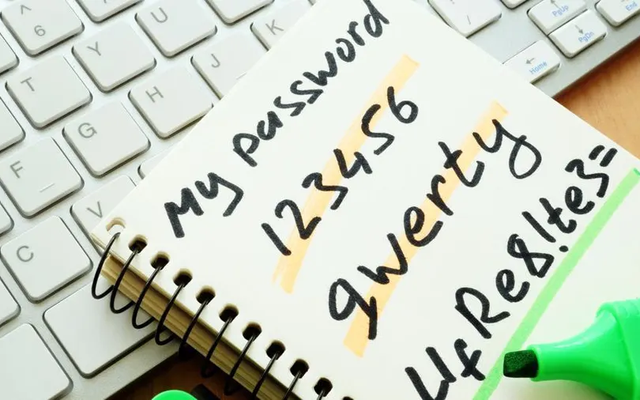 My password
123456
qwerty
UfRe8!te3=
6
Y
U
K
T
H
J
G
F
V
C
Home
PgUp
PgDn
End